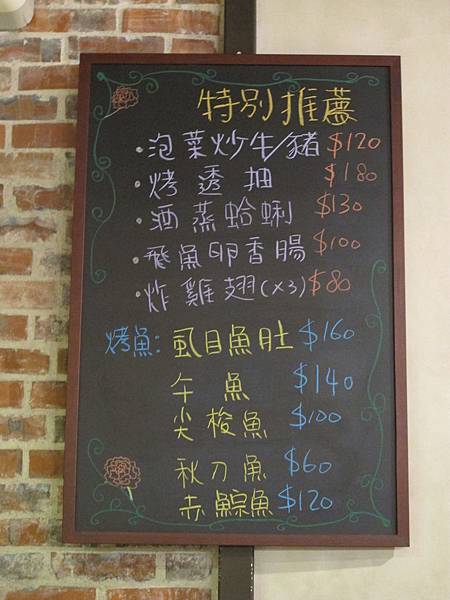 特別推薦
·泡菜炒牛/豬 $120
·烤透抽 $180
·酒蒸蛤蜊 $130
·飛魚卵香腸 $100
·炸雞翅(x3) $80
烤魚:虱目魚肚 $160
午魚 $140
尖梭魚 $100
秋刀魚 $60
赤鯮魚 $120